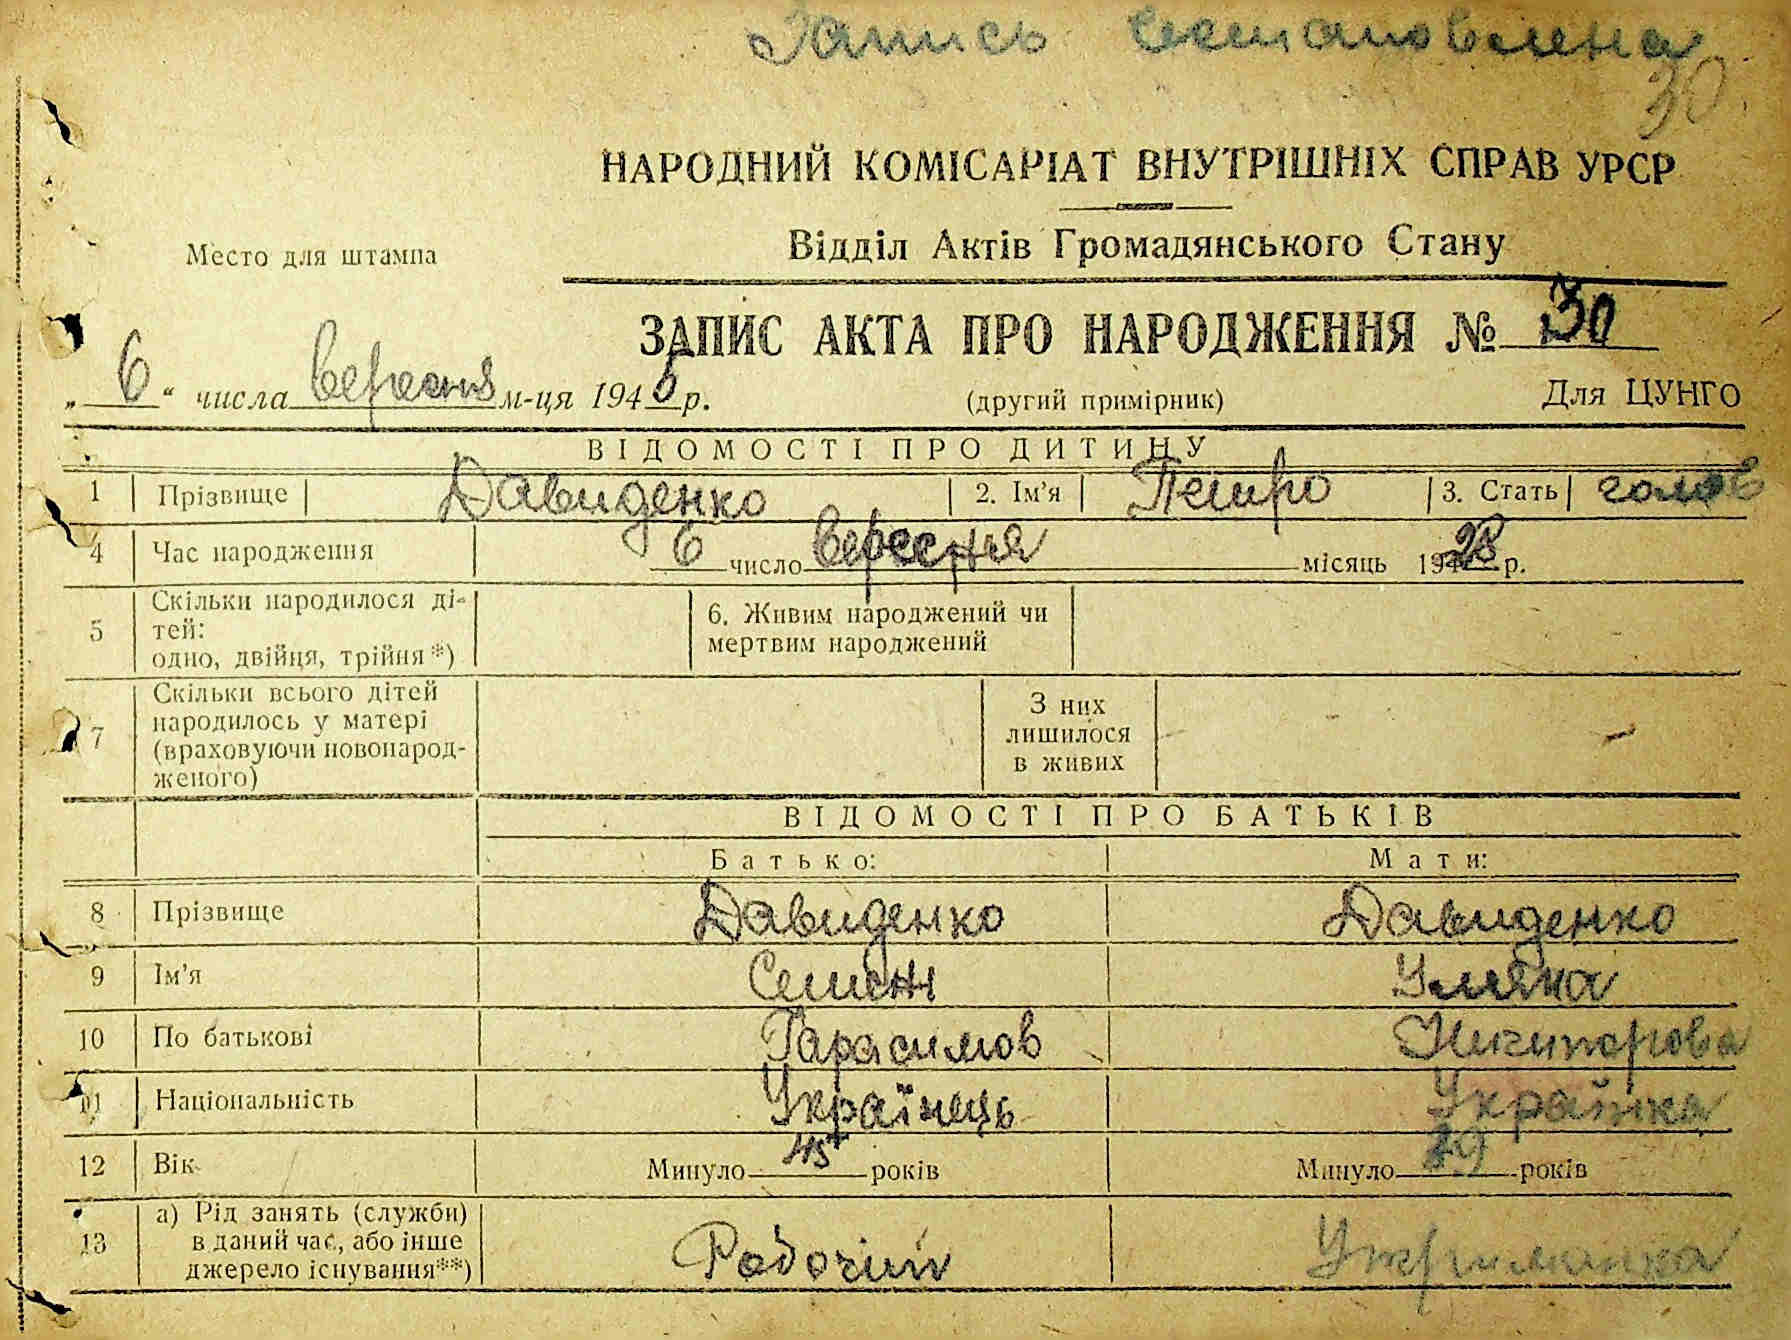 Запись
30
НАРОДНИЙ КОМІСАРІАТ ВНУТРІШНІХ СПРАВ УРСР
Место для штампа
Відділ Актів Громадянського Стану
ЗАПИС АКТА ПРО НАРОДЖЕННЯ № 30
„ 6 “ числа вересня м-ця 1945 р. (другий примірник) Для ЦУНГО
ВІДОМОСТІ ПРО ДИТИНУ
1 Прізвище Давиденко 2. Ім'я Петро 3. Стать чолов
4 Час народження 6 число вересня місяць 1928 р.
5 Скільки народилося дітей: одно, двійця, трійня*) 6. Живим народжений чи мертвим народжений
7 Скільки всього дітей народилось у матері (враховуючи новонародженого) З них лишилося в живих
ВІДОМОСТІ ПРО БАТЬКІВ
Батько: Мати:
8 Прізвище Давиденко Давиденко
9 Ім'я Семен Уляна
10 По батькові Гарасимов Ничипорова
11 Національність Українець Українка
12 Вік Минуло 45 років Минуло 39 років
13 а) Рід занять (служби) в даний час, або інше джерело існування**) Робочий Утриманка